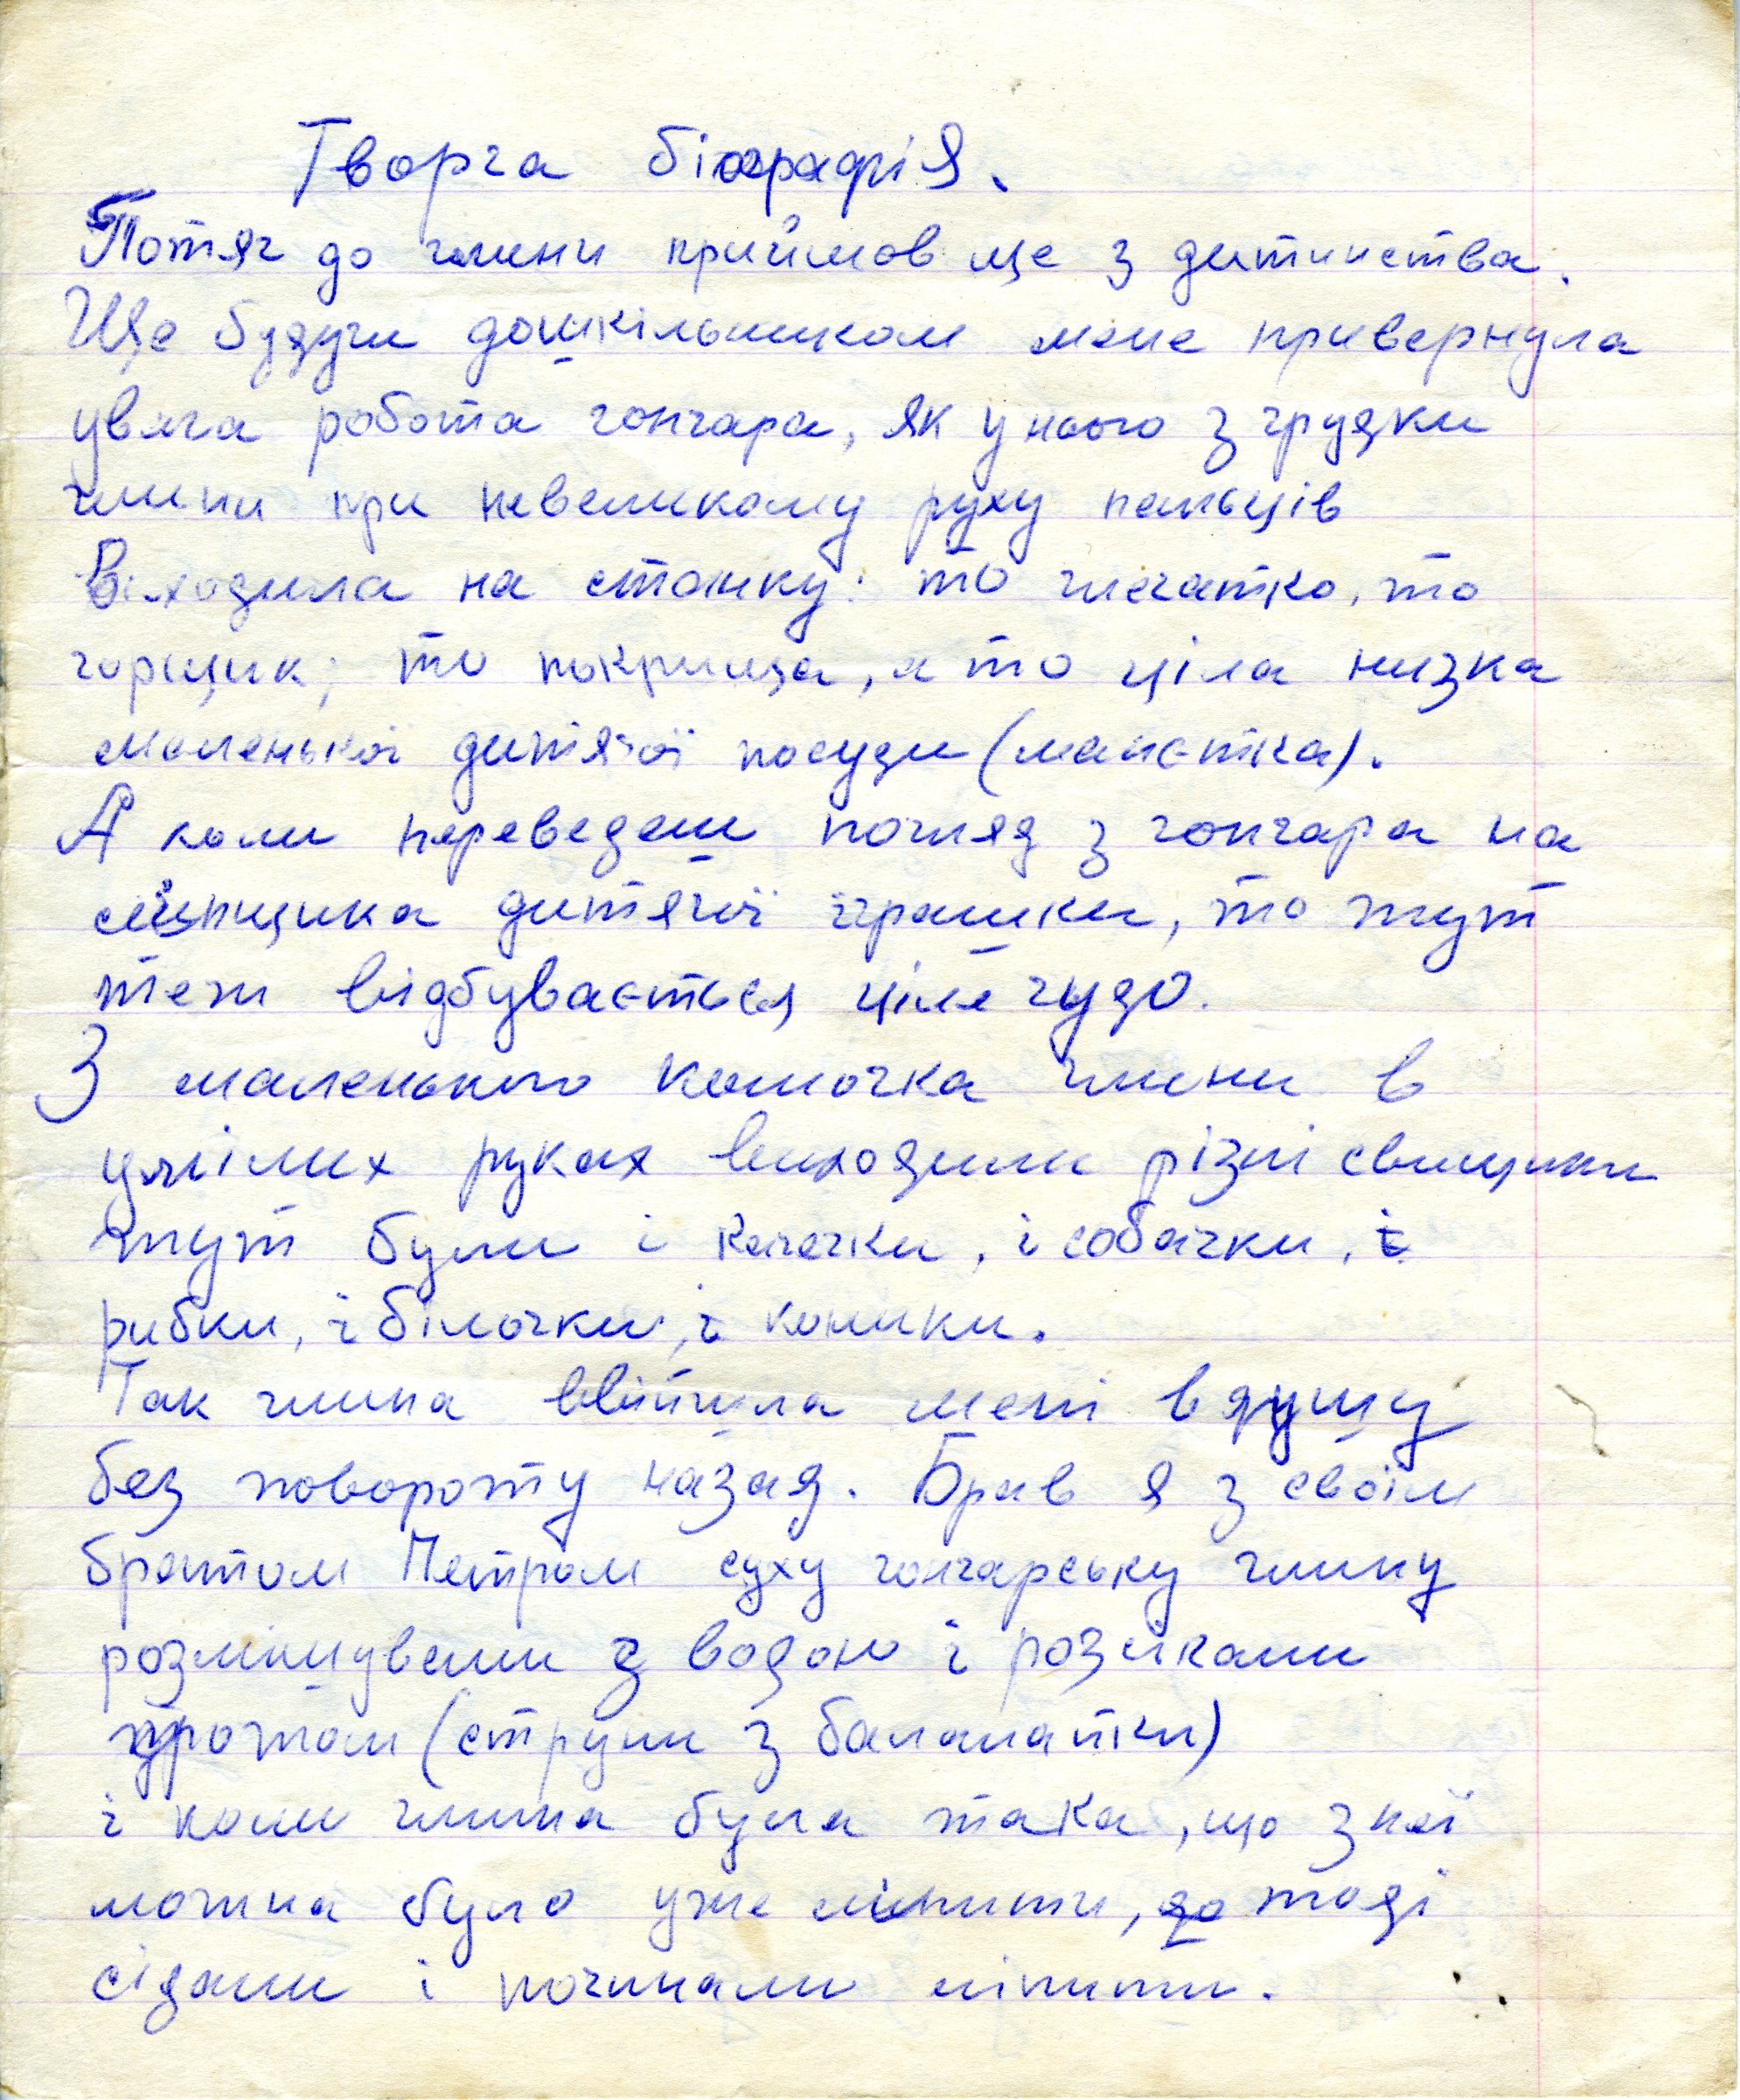 Творча біографія.
Потяг до глини прийшов ще з дитинства.
Ще будучи дошкільником мене привернула
увага робота гончара, як у нього з грудки
глини при невеликому руху пальців
виходила на станку: то глечатко, то
горщик, то покришка, а то ціла низка
маленької дитячої посуди (манєтка).
А коли переведеш погляд з гончара на
ліпщика дитячої іграшки, то тут
теж відбувається ціле чудо.
З маленького комочка глини в
умілих руках виходили різні свищики
тут були і качечки, і собачки, і
рибки, і білочки, і коники.
Так глина ввійшла мені в душу
без повороту назад. Брав я з своїм
братом Петром суху гончарську глину
розмішували з водою і розгикали
дротом (струни з балалайки)
і коли глина була така, що з неї
можна було уже ліпити, тоді
сідали і починали ліпити.